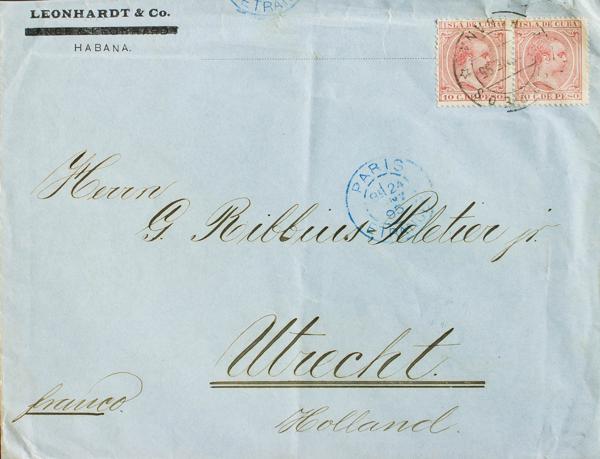 LEONHARDT & Co.
HABANA.
ETRAN
ISLA DE CUBA
ISLA DE CUBA
10 C. DE PESO
10 C. DE PESO
PARIS
24
95
ETRANGER
Herrn
G. Ribbius Peletier jr.
Utrecht.
franco.
Holland.